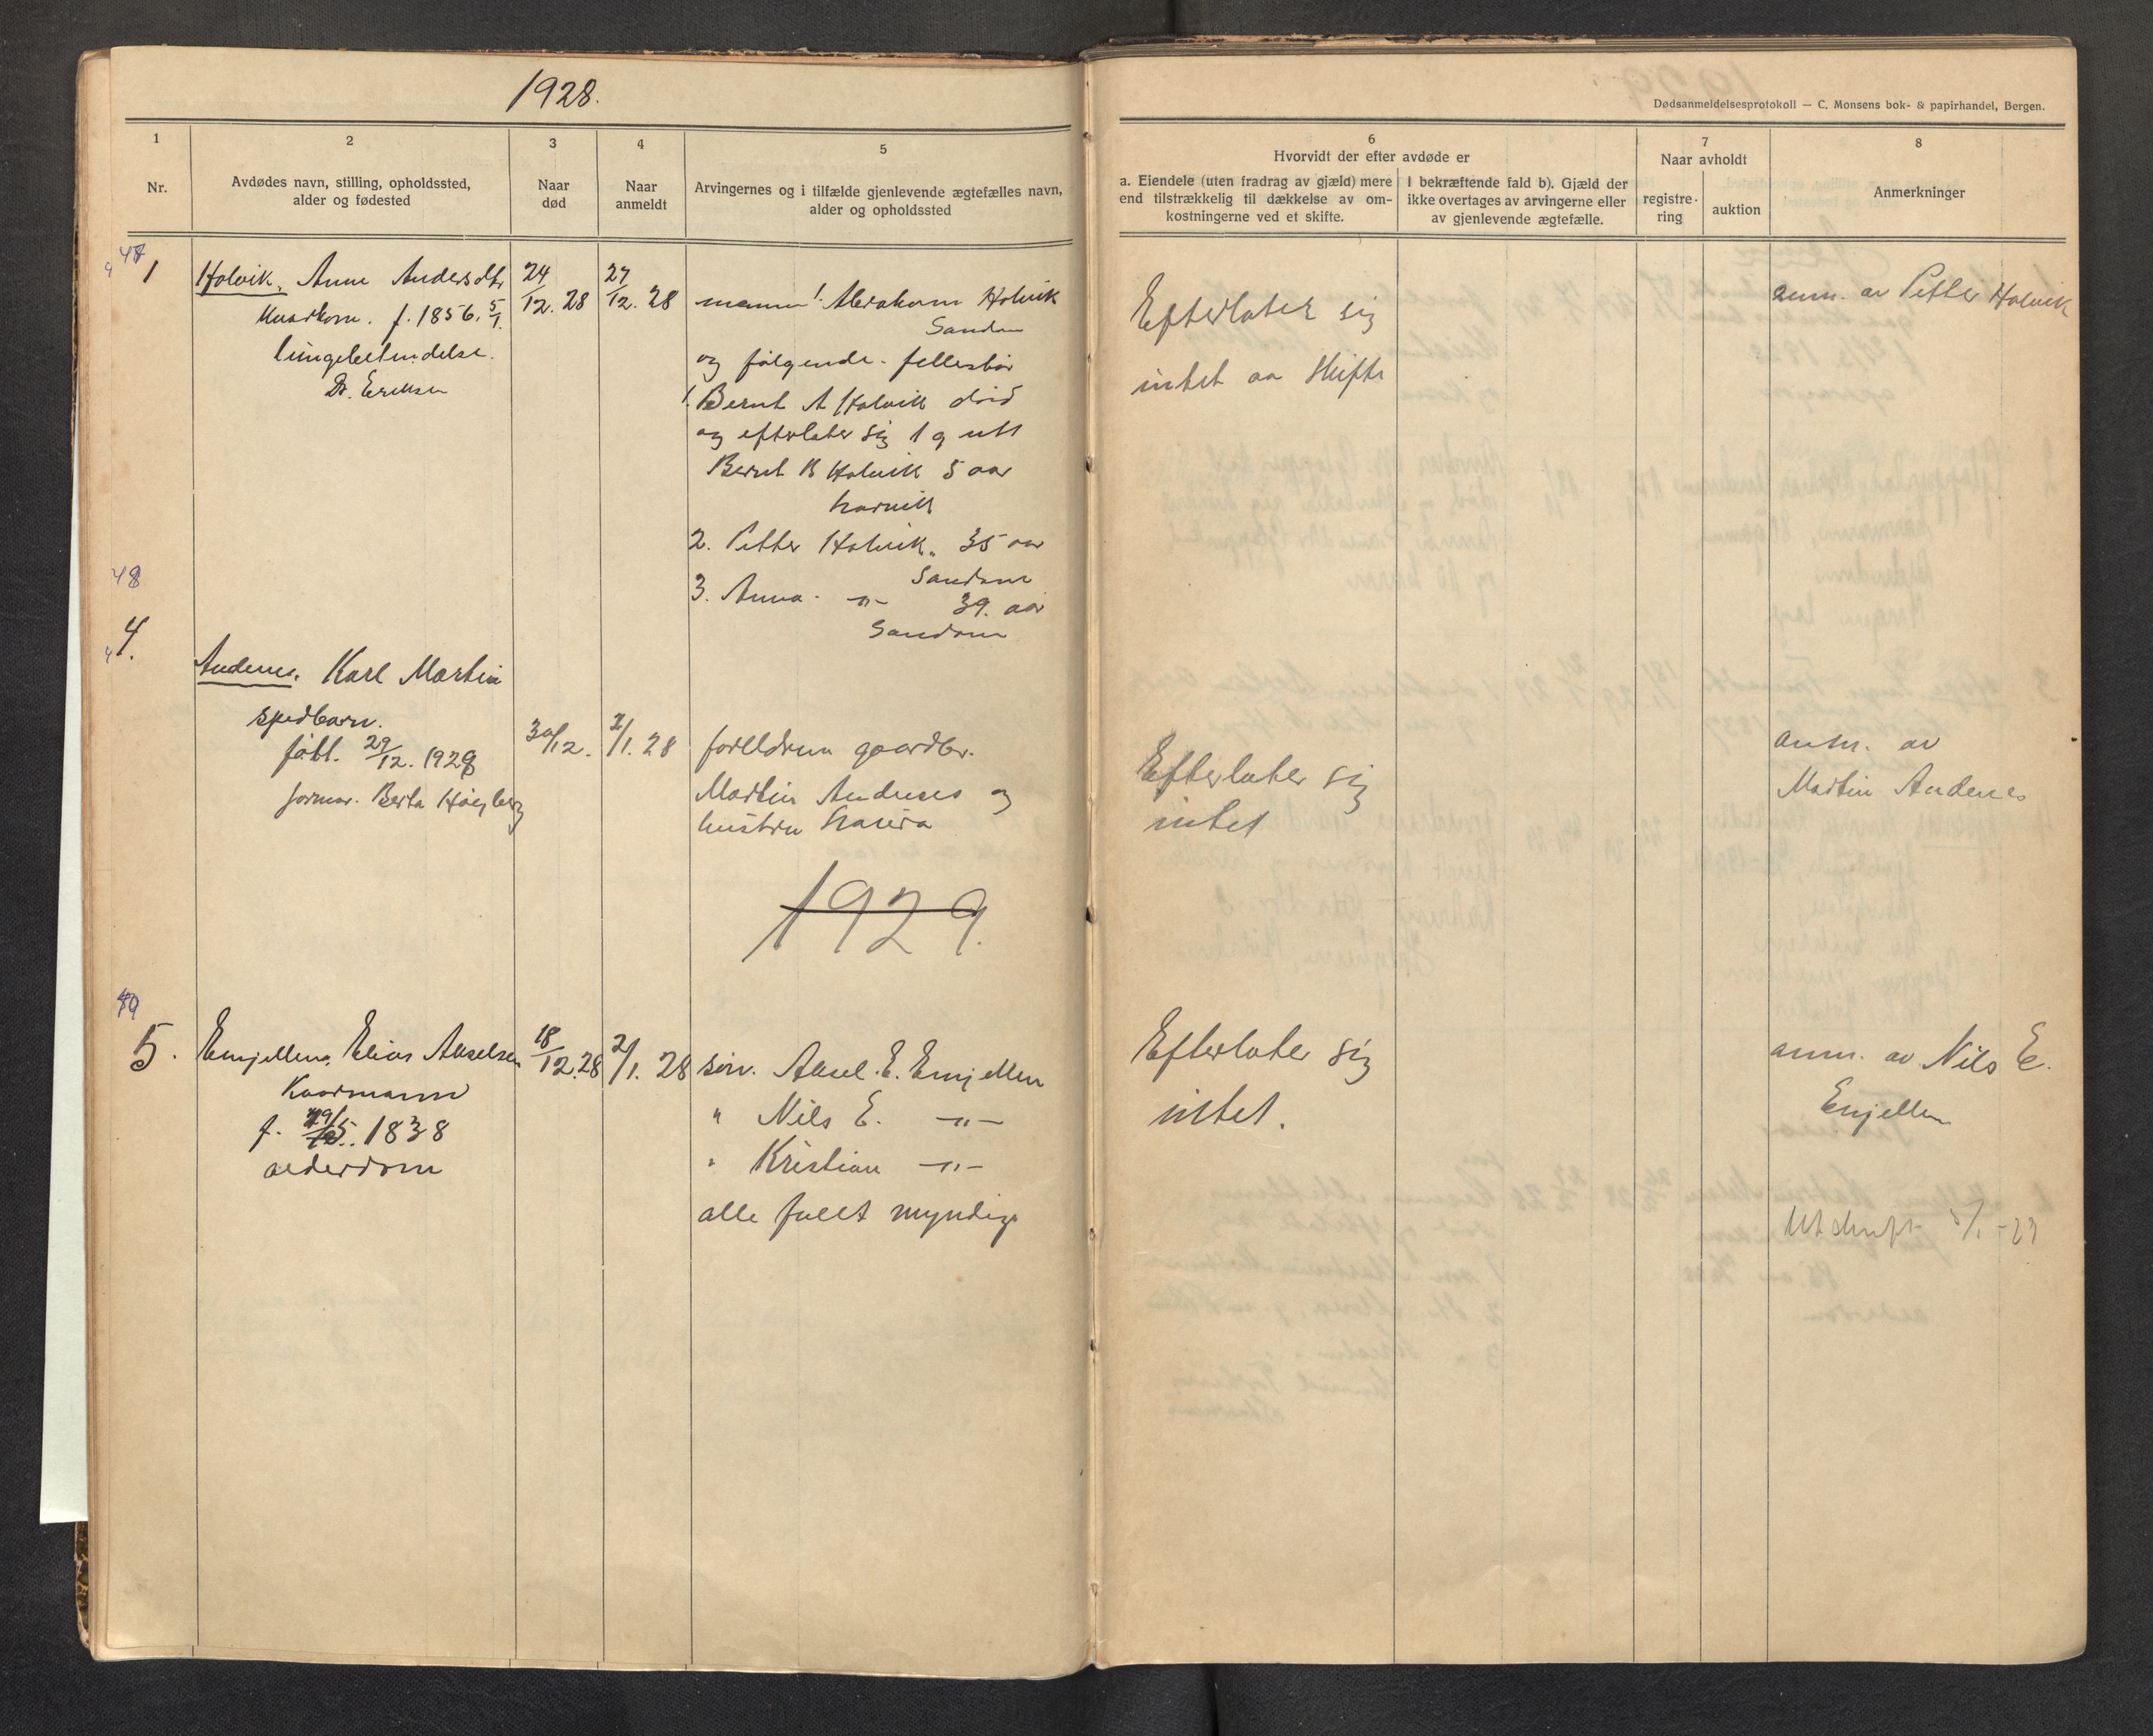 1928.
Dødsanmeldelsesprotokoll — C. Monsens bok- & papirhandel, Bergen.
1
Nr.
2
Avdødes navn, stilling, opholdssted,
alder og fødested
3
Naar
død
4
Naar
anmeldt
5
Arvingernes og i tilfælde gjenlevende ægtefælles navn,
alder og opholdssted
6
Hvorvidt der efter avdøde er
a. Eiendele (uten fradrag av gjæld) mere
end tilstrækkelig til dækkelse av om-
kostningerne ved et skifte.
I bekræftende fald b). Gjæld der
ikke overtages av arvingerne eller
av gjenlevende ægtefælle.
7
Naar avholdt
registre-
ring
auktion
8
Anmerkninger
47
1
Holvik, Anne Andersdtr
f. 1856. 5/1.
lungebetendelse.
Dr. Eriksen
24/12. 28
27/12. 28
mann: Abraham Holvik
Sandan
og følgende fellesbø
1. Bernt A Holvik død
og efterlater sig 1 g utt
Bernt B Holvik 5 aar
Narvik
2. Petter Holvik. 35 aar
Sandane
3. Anna -"- 39. aar
Sandane
Efterlater sig
intet aa skifte
anm. av Petter Holvik
48
4.
Andenes, Karl Martin
spedbarn.
født. 29/12. 1928
jormor. Berta Høyberg
30/12.
2/1. 28
foreldrene gaardbr.
Martin Andenes og
hustru
Efterlater sig
intet
anm. av
Martin Andenes
1929.
49
5.
Emjellen, Elias Akselsen
Kaarmann
f. 1838
alderdom
18/12.28
2/1. 28
søn. Aksel. E. Emjellen
" Nils E. -"-
" Kristian -"-
alle fullt myndige
Efterlater sig
intet.
anm. av Nils E.
Emjellen
Utskrift 5/1 - 29